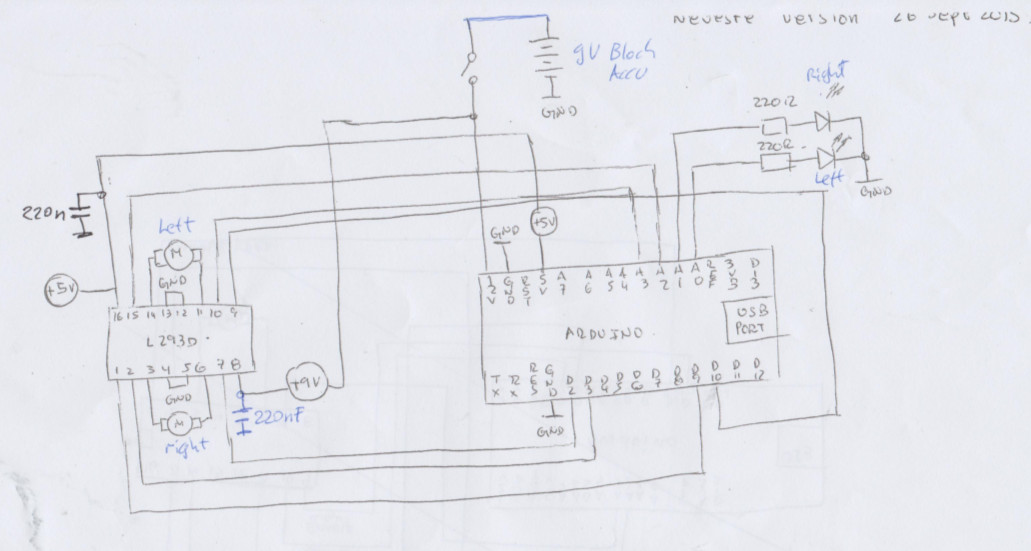 NEUESTE VERSION 26 SEPT 2015.
9V Block
ACCU
GND
Right
220Ω
220Ω
Left
GND
220n
Left
M
GND
+5V
GND
+5V
16 15 14 13 12 11 10 9
L293D
1 2 3 4 5 6 7 8
GND
M
right
+9V
220nF
12V GND RST 5V A7 A6 A5 A4 A3 A2 A1 A0 REF 3V3 D13
ARDUINO
USB
PORT
TX RX RES GND D2 D3 D4 D5 D6 D7 D8 D9 D10 D11 D12
GND